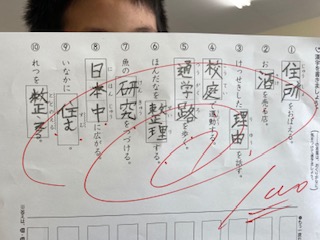 ① 住所をおぼえる。
② お酒を売る店。
③ けっせきした理由を話す。
④ 校庭で運動する。
⑤ 通学路を歩く。
⑥ ほんだなを整理する。
⑦ 魚の研究をつづける。
⑧ 日本中に広がる。
⑨ いなかに住む。
⑩ れつを整える。
100